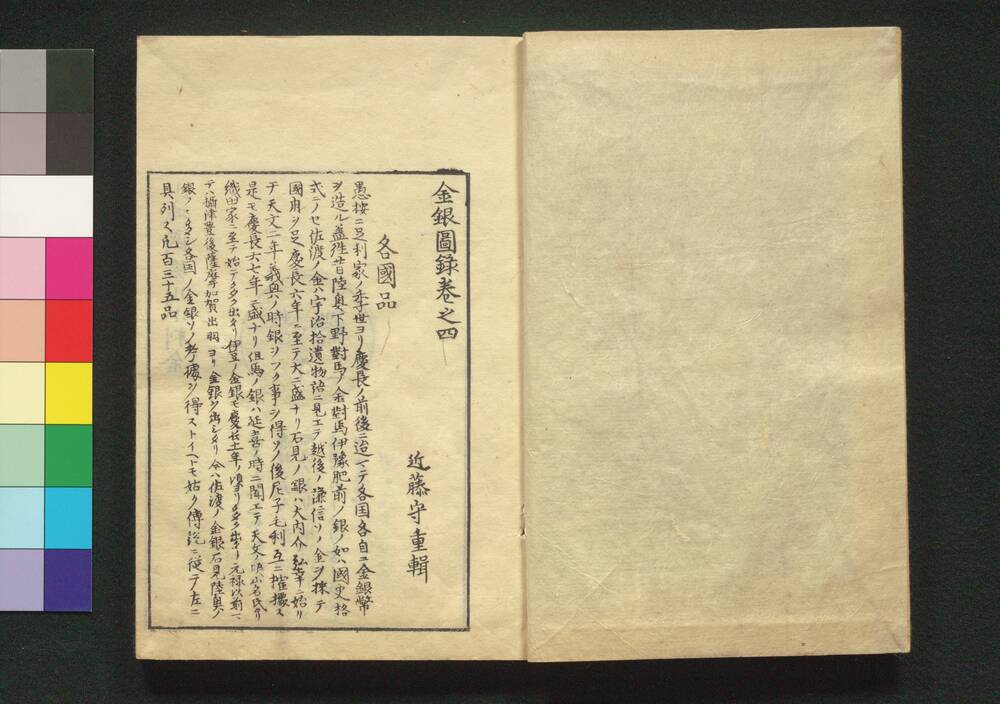 金銀圖錄卷之四
近藤守重輯
各國品
愚按ニ足利家ノ季世ヨリ慶長ノ前後ニ迨マテ各国各自ニ金銀幣
ヲ造ル蓋徃昔陸奥下野對馬ノ金對馬伊豫肥前ノ銀ノ如ハ國史格
式ニノセ佐渡ノ金ハ宇治拾遺物語ニ見エテ越後ノ謙信ソノ金ヲ採テ
國用ヲ足慶長六年ニ至テ大ニ盛ナリ石見ノ銀ハ大内介弘幸ニ始リ
テ天文二年義興ノ時銀ヲフク事ヲ得ソノ後尼子毛利互ニ據ス
是モ慶長六七年ニ盛ナリ但馬ノ銀ハ延喜ノ時ニ聞エテ天文ノ
織田家ニ至テ始テ出タリ伊豆ノ金銀モ慶長十一年ノ頃ヨリ出テ元禄以前
テハ攝津豊後薩摩加賀出羽ヨリ金銀ヲ出シタリ今ハ佐渡ノ金銀石見陸奥ノ
銀ノミ各国ノ金銀ソノ考據ヲ得ストイヘトモ姑ク傳説ニ従テ左ニ
具列ス凡百三十五品